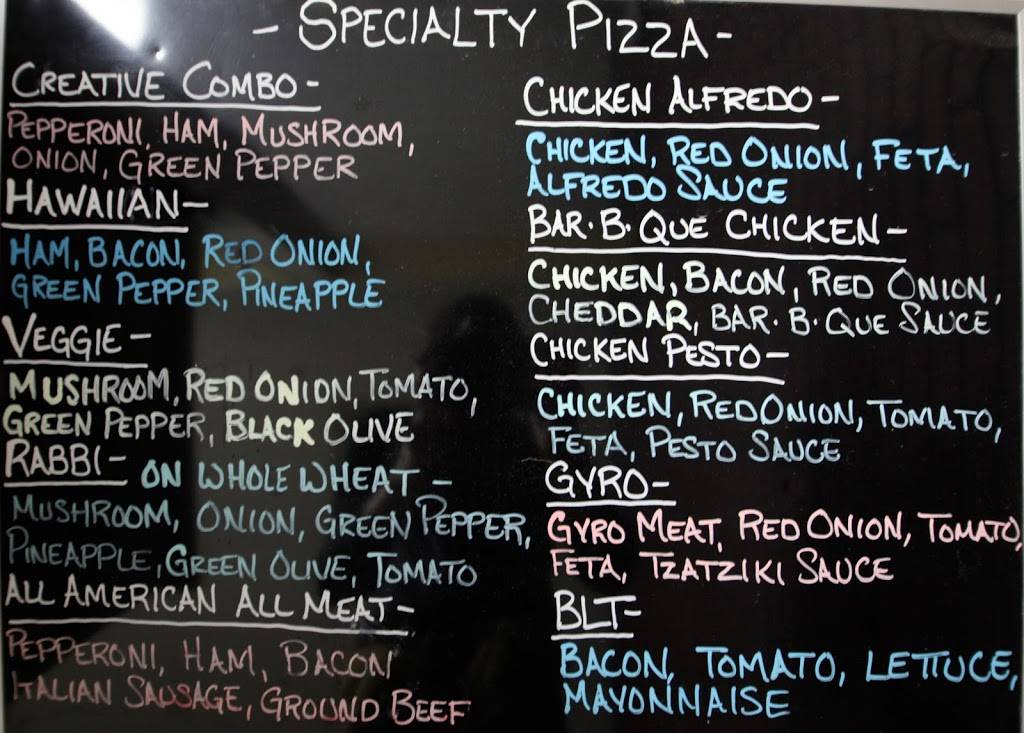 - SPECIALTY PIZZA -
CREATIVE COMBO -
PEPPERONI, HAM, MUSHROOM,
ONION, GREEN PEPPER
HAWAIIAN -
HAM, BACON, RED ONION,
GREEN PEPPER, PINEAPPLE
VEGGIE -
MUSHROOM, RED ONION, TOMATO,
GREEN PEPPER, BLACK OLIVE
RABBI - ON WHOLE WHEAT -
MUSHROOM, ONION, GREEN PEPPER,
PINEAPPLE, GREEN OLIVE, TOMATO
ALL AMERICAN ALL MEAT -
PEPPERONI, HAM, BACON
ITALIAN SAUSAGE, GROUND BEEF
CHICKEN ALFREDO -
CHICKEN, RED ONION, FETA,
ALFREDO SAUCE
BAR·B·QUE CHICKEN -
CHICKEN, BACON, RED ONION,
CHEDDAR, BAR·B·QUE SAUCE
CHICKEN PESTO -
CHICKEN, RED ONION, TOMATO,
FETA, PESTO SAUCE
GYRO -
GYRO MEAT, RED ONION, TOMATO,
FETA, TZATZIKI SAUCE
BLT -
BACON, TOMATO, LETTUCE,
MAYONNAISE